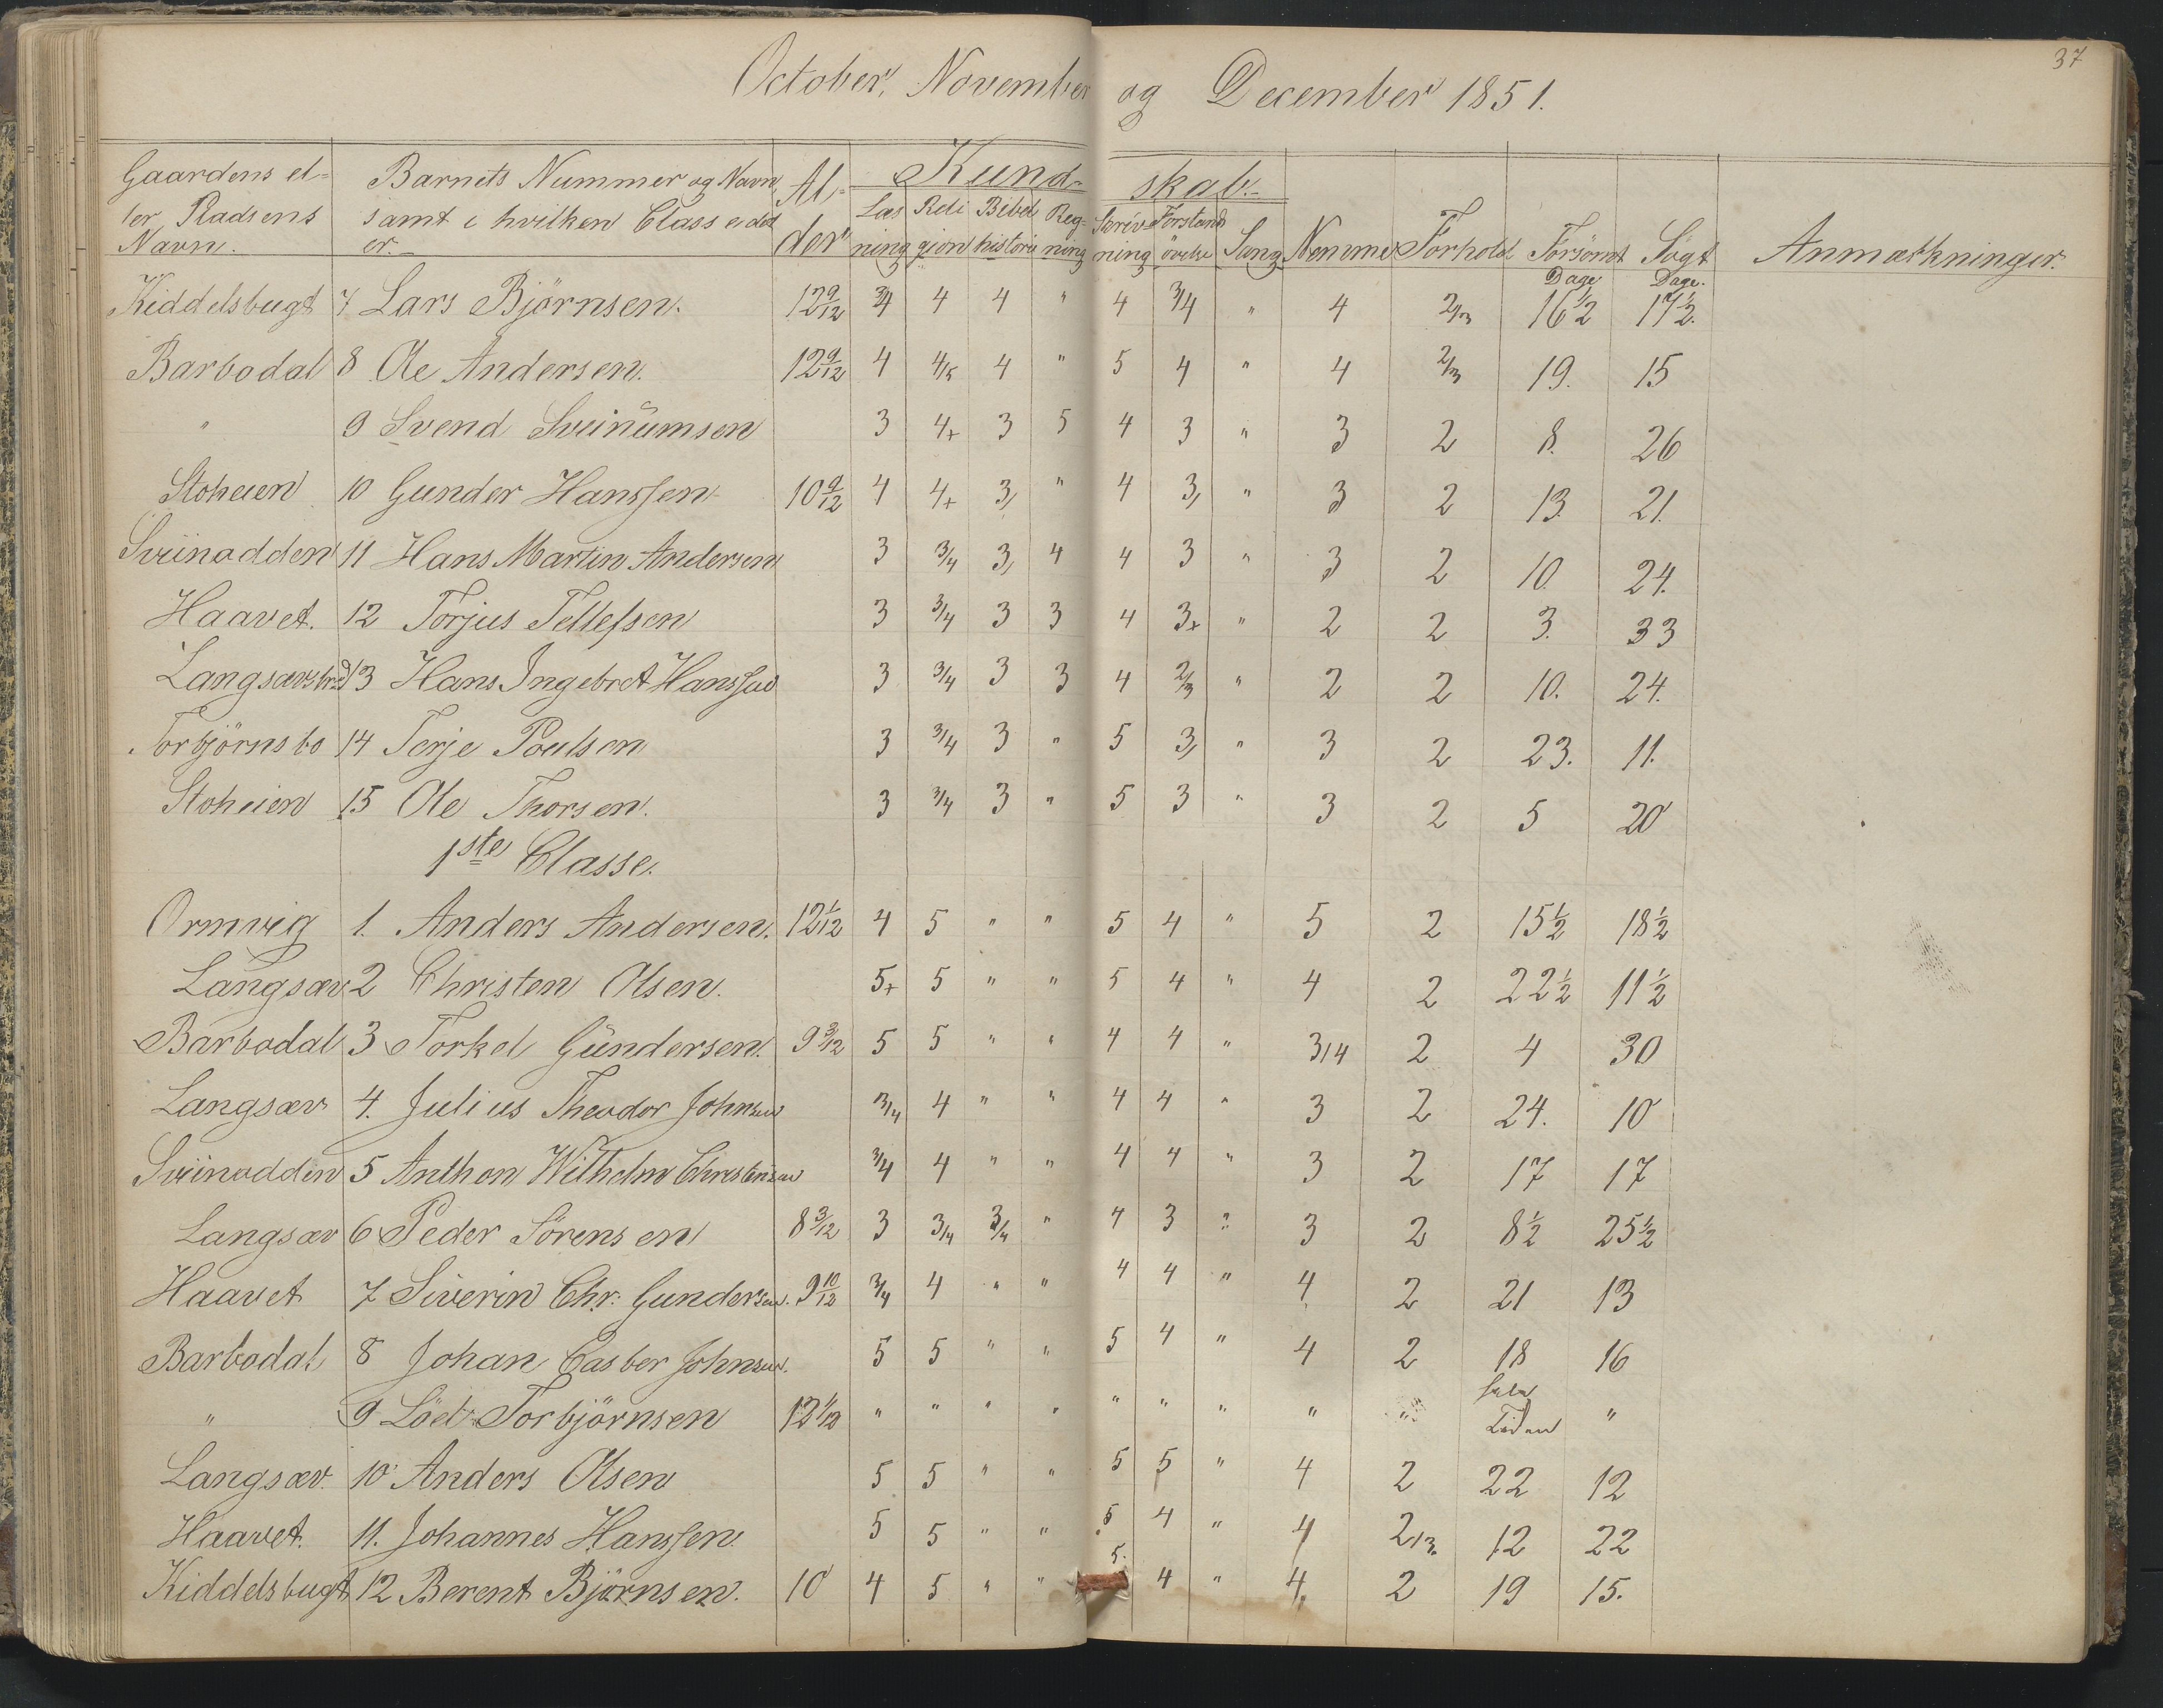 37
October, November og December 1851.
Gaardens el- ler Pladsens Navn. | Barnets Nummer og Navn, samt i hvilken Class e det er. | Al- der | Kund- skab. | Læs ning | Reli gion | Bibel historie | Reg- ning | Skriv ning | Forstands övelse | Sang | Nemme | Forhold | Forsömt Dage | Sögt Dage. | Anmærkninger.
Kiddelsbugt 7 Lars Björnsen. 12 9/12 3/4 4 4 " 4 3/4 " 4 2/3 16 1/2 17 1/2.
Barbodal 8 Ole Andersen. 12 9/12 4 4/5 4 " 5 4 " 4 2/3 19. 15
" 9 Svend Sveinümsen 3 4+ 3 5 4 3 " 3 2 8. 26
Stoheien 10 Gunder Hanssen 10 9/12 4 4+ 3, " 4 3, " 3 2 13. 21.
Sviinodden 11 Hans Martin Andersen 3 3/4 3, 4 4 3 " 3 2 10. 24.
Haavet. 12 Torjus Tellefsen 3 3/4 3 3 4 3+ " 2 2 3. 33
13 Hans Ingebret Hanssen 3 3/4 3 3 4 2/3 " 2 2 10. 24.
Torbjörnsbo 14 Terje Poulsen 3 3/4 3 " 5 3, " 3 2 23. 11.
Stoheien 15 Ole Thorsen. 3 3/4 3 " 5 3 " 3 2 5 20
1ste Classe.
Ormvig 1. Anders Andersen. 12 1/12 4 5 " " 5 4 " 5 2 15 1/2 18 1/2
Langsæv 2 Christen Olsen. 5+ 5 " " 5 4 " 4 2 22 1/2 11 1/2
Barbodal 3 Torkel Gündersen. 9 3/12 5 5 " " 4 4 " 3/4 2 4 30
Langsæv 4. Julius Theodor Johnsen 3/4 4 " " 4 4 " 3 2 24. 10
Sviinodden 5 Anthon Wilhelm Christensen 3/4 4 " " 4 4 " 3 2 17 17
Langsæv 6 Peder Sörensen 8 3/12 3 3/4 3/4 " 4 3 " 3 2 8 1/2 25 1/2
Haavet 7 Siverin Chr: Gundersen. 9 10/12 3/4 4 " " 4 4 " 4 2 21 13
Barbodal 8 Johan Casber Johnsen. 5 5 " " 5 4 " 4 2 18 16
" 9 Torbjörnsen 12 1/12 " " " " " " " " " hele Tiden "
Langsæv. 10 Anders Olsen 5 5 " " 5 5 " 4 2 22 12
Haavet. 11. Johannes Hanssen. 5 5 " " 5 4 " 4 2/3. 12 22
Kiddelsbugt 12 Berent Björnsen. 10 4 5 " " 5. 4 " 4. 2 19 15.